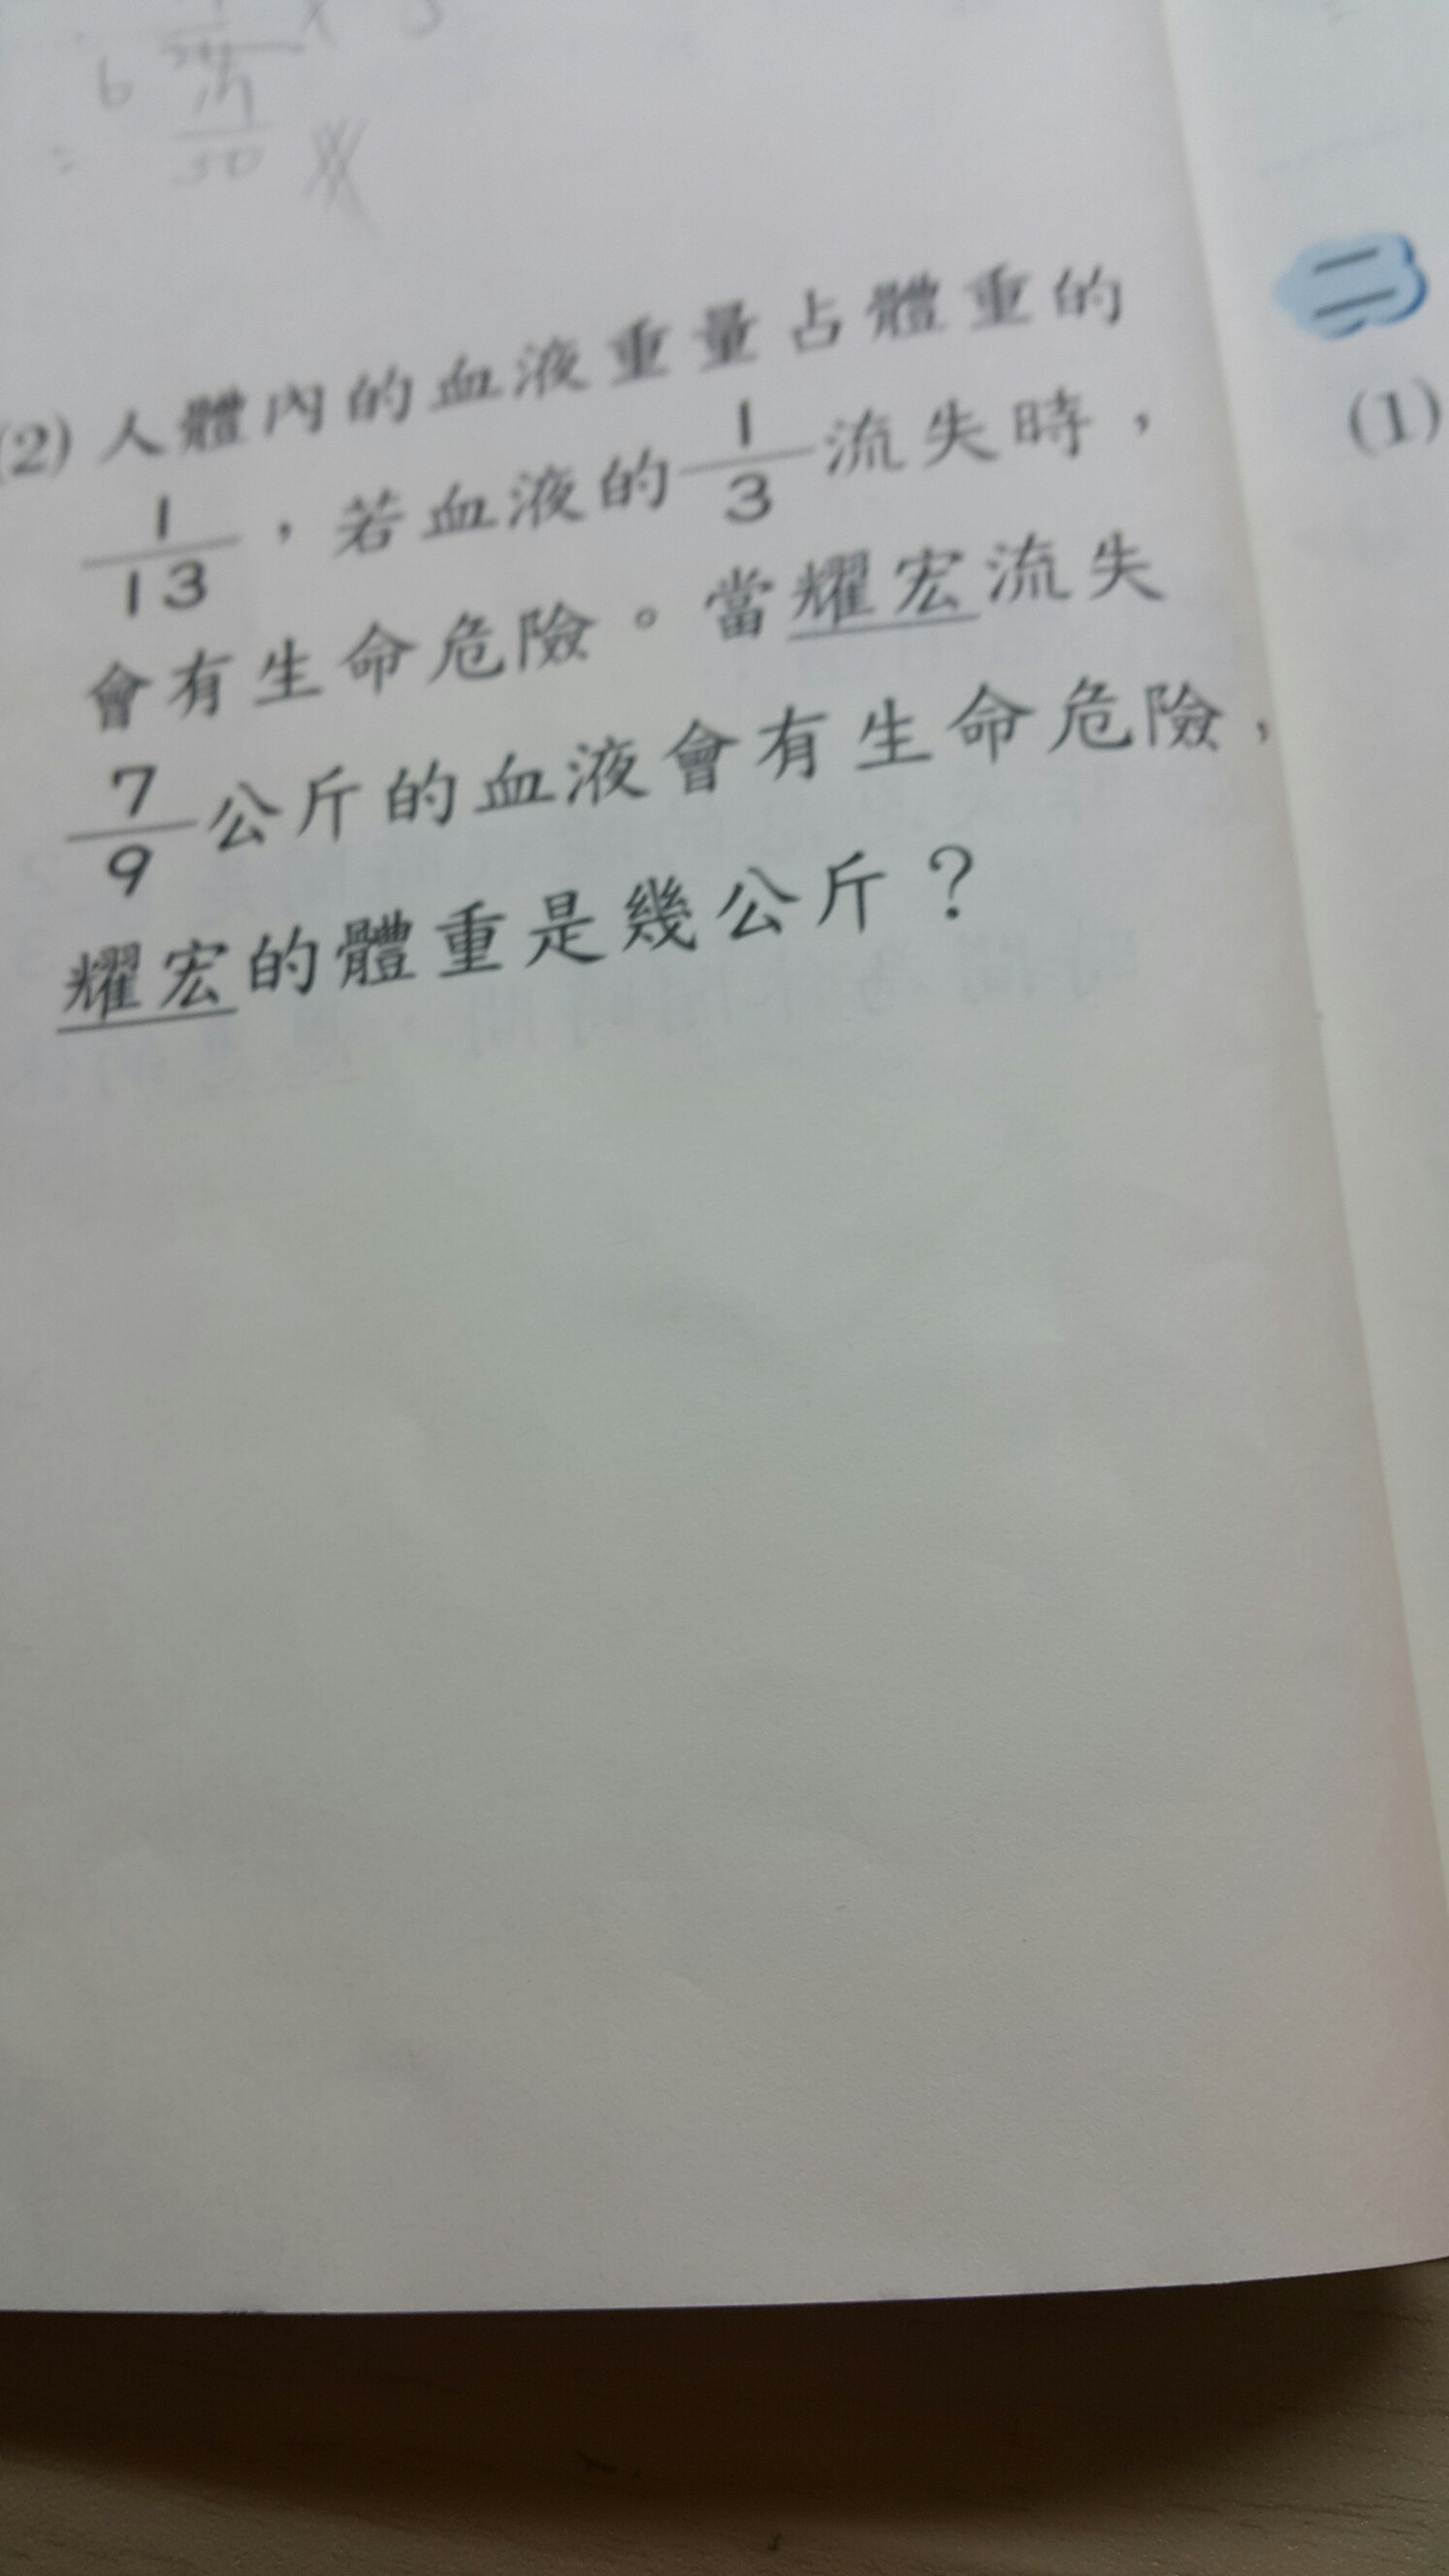 = 50
二
(1)
(2) 人體內的血液重量占體重的
1/13，若血液的1/3流失時，
會有生命危險。當耀宏流失
7/9公斤的血液會有生命危險，
耀宏的體重是幾公斤？